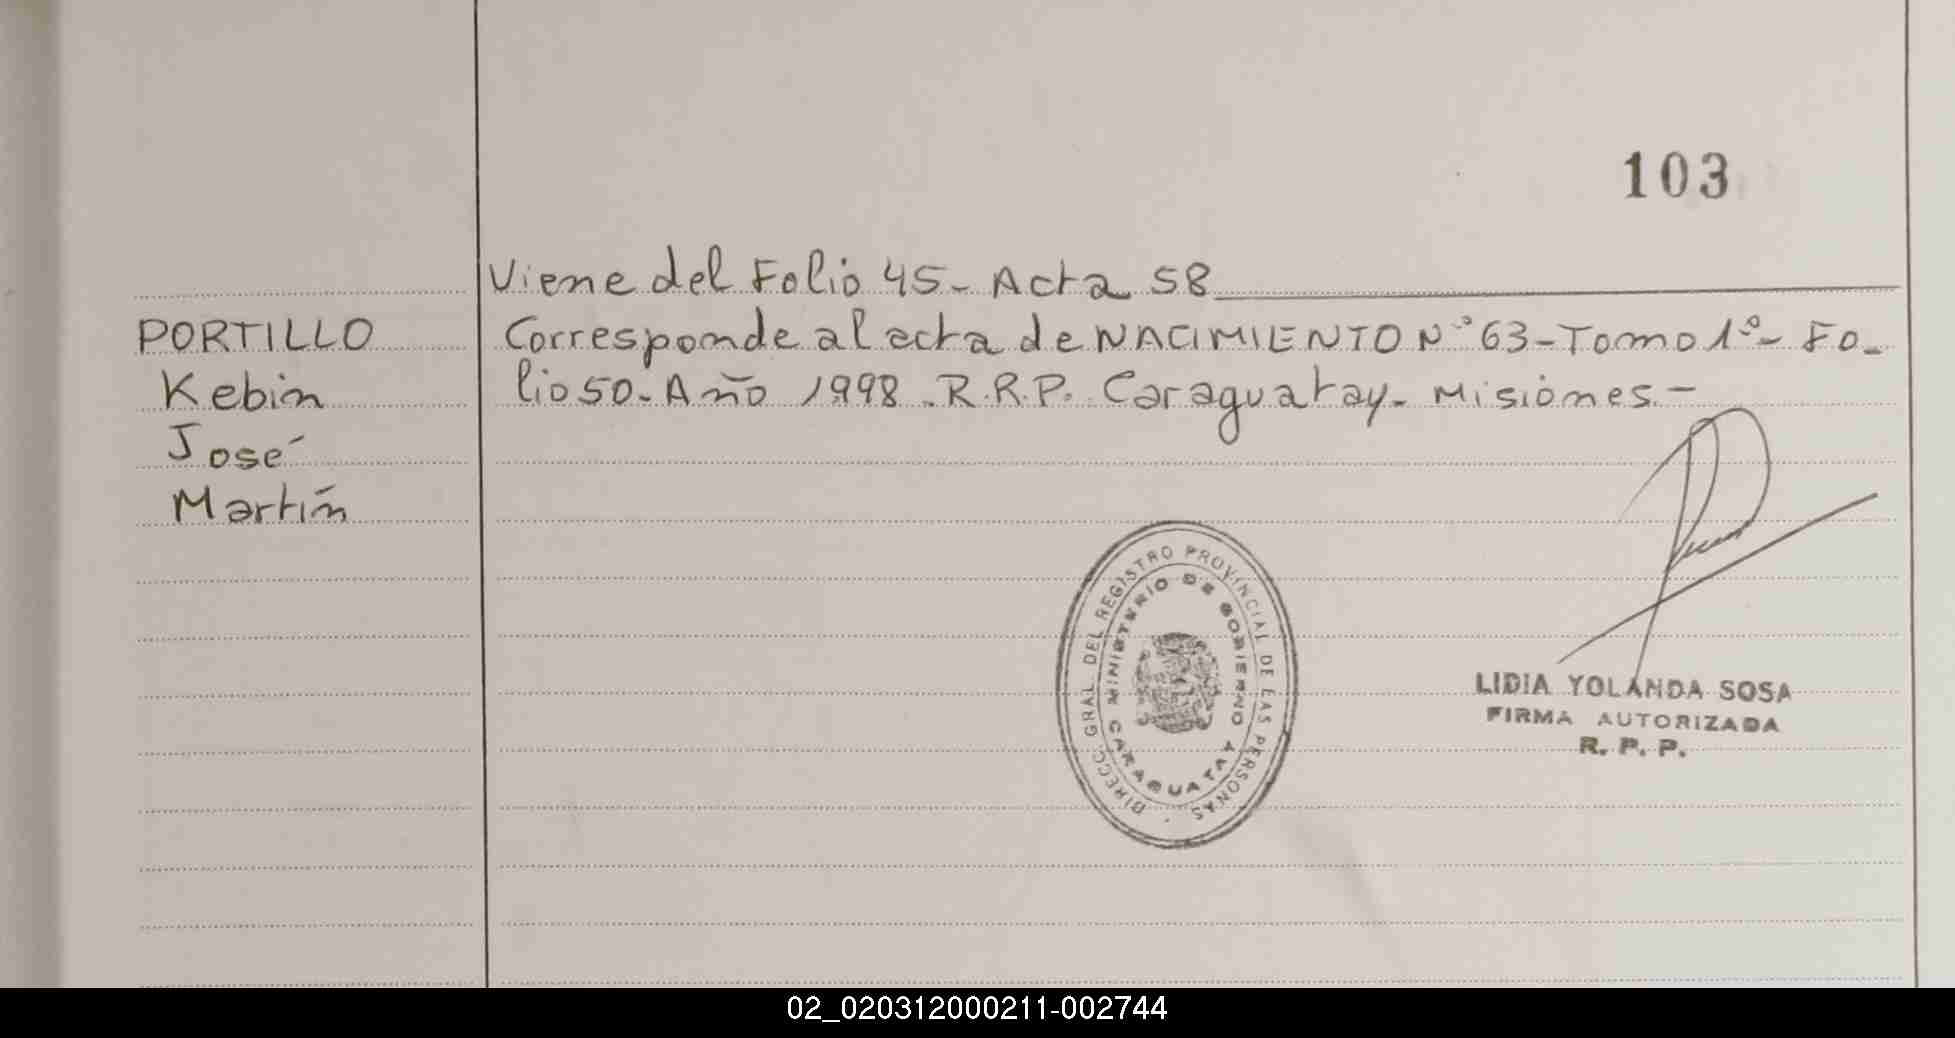 103
Viene del Folio 45- Acta 58
PORTILLO
Kebin
José
Martín
Corresponde al acta de NACIMIENTO N° 63-Tomo 1º- Fo-
lio 50- Año 1998. R.R.P. Caraguatay- Misiones.-
DIRECC. GRAL. DEL REGISTRO PROVINCIAL DE LAS PERSONAS
MINISTERIO DE GOBIERNO
CARAGUATAY
LIDIA YOLANDA SOSA
FIRMA AUTORIZADA
R. P. P.
02_020312000211-002744